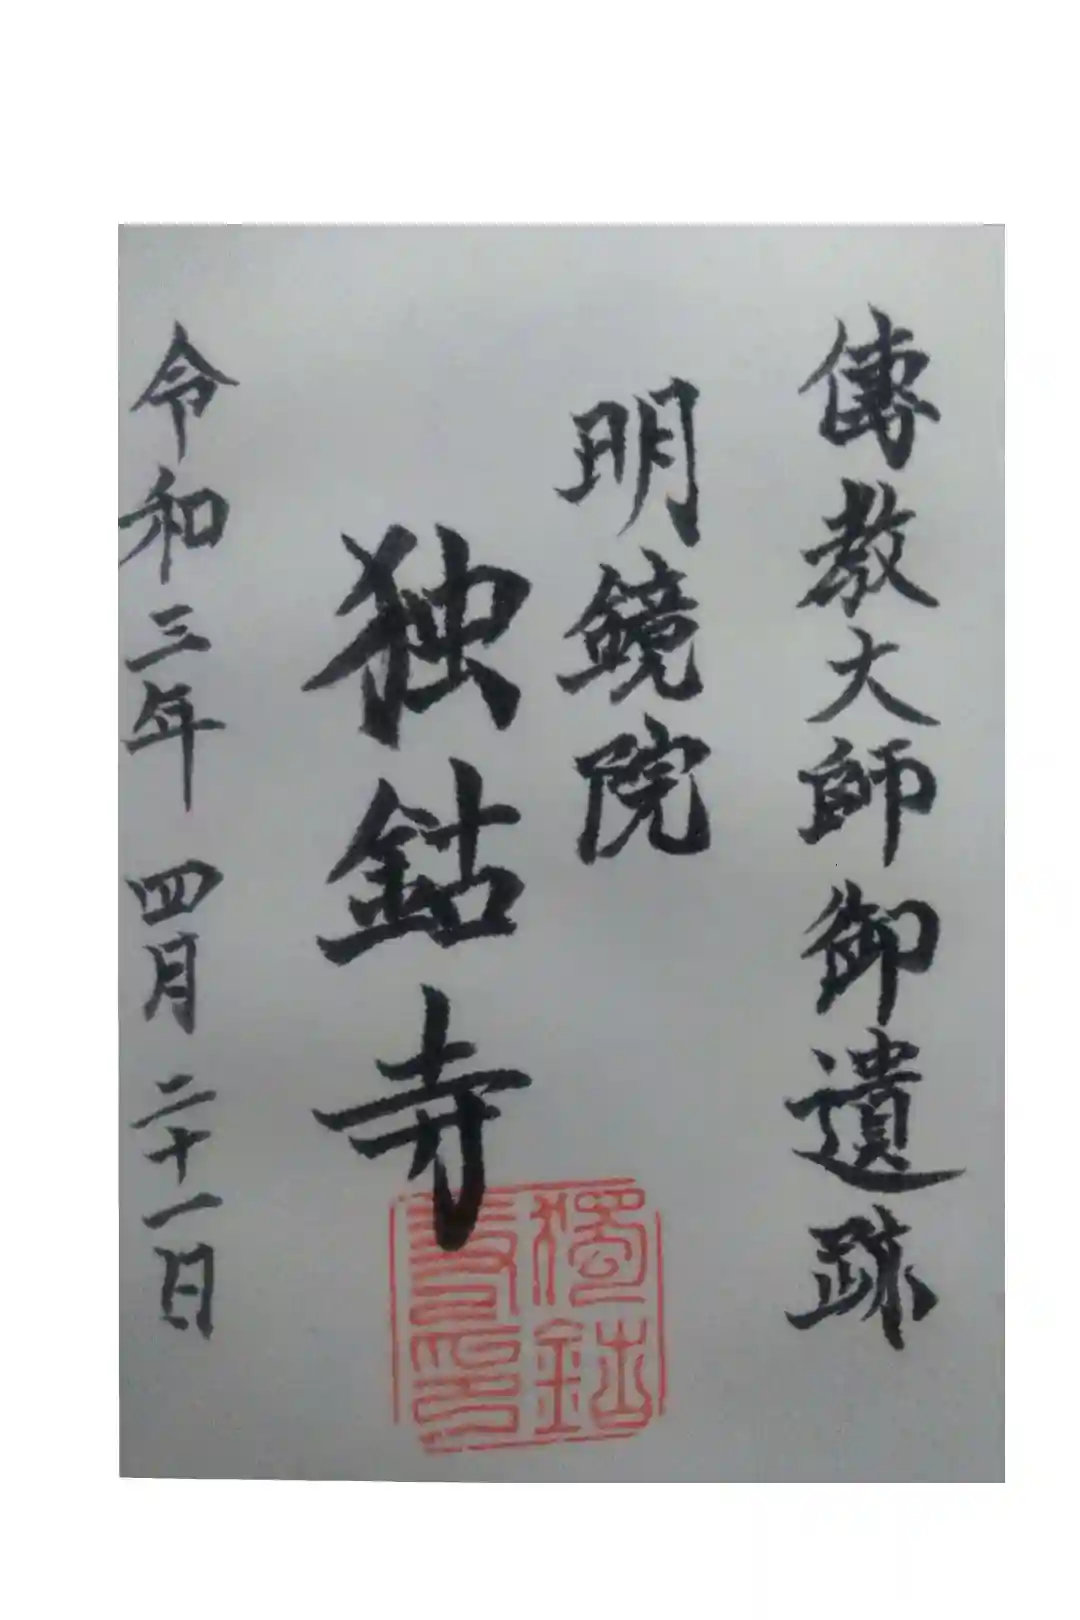 傳教大師御遺跡
明鏡院
独鈷寺
獨鈷
寺印
令和三年 四月二十一日